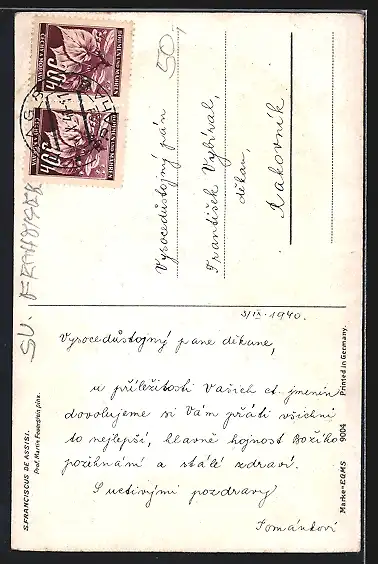 Vysocedůstojný pán
František Vybíral,
děkan,
Rakovník
50
40 h
BÖHMEN UND MÄHREN
ČECHY A MORAVA
40 h
BÖHMEN UND MÄHREN
ČECHY A MORAVA
SV. FRANTIŠEK
3/IX. 1940.
Vysocedůstojný pane děkane,
u příležitosti Vašich ct. jmenin
dovolujeme si Vám přáti všichni
to nejlepší, hlavně hojnost Božího
požehnání a stálé zdraví.
S uctivými pozdravy
Tománkovi
S. FRANCISCUS DE ASSISI.
Prof. Martin Feuerstein pinx.
Marke=EQMS 9004 Printed in Germany.